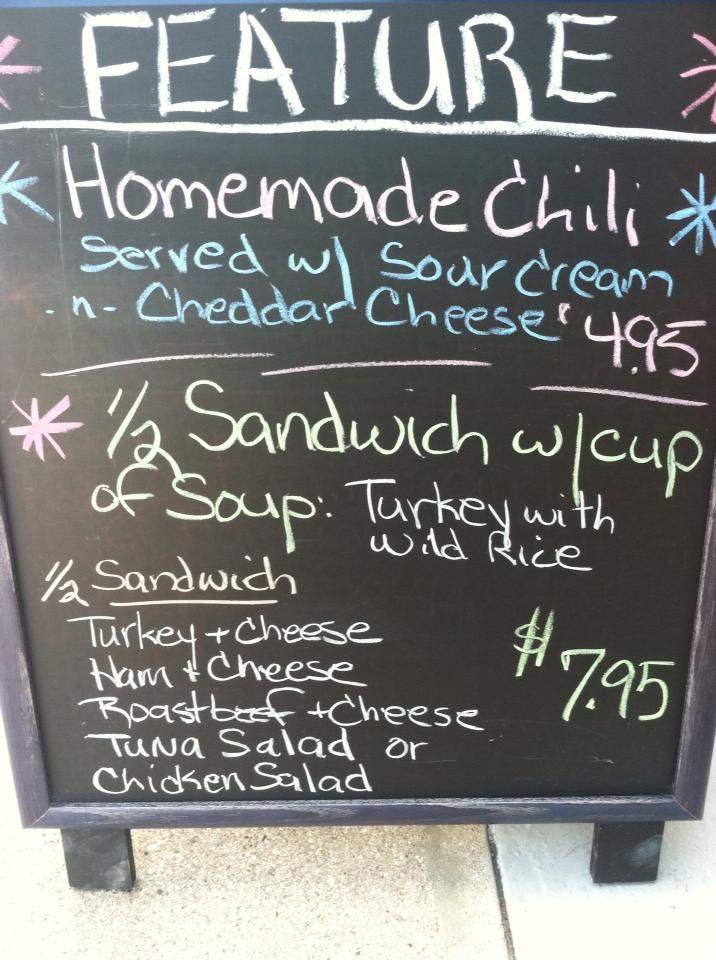 FEATURE
Homemade Chili
Served w/ Sour Cream
-n- Cheddar Cheese $4.95
1/2 Sandwich w/cup
of Soup: Turkey with
Wild Rice
1/2 Sandwich
Turkey + Cheese
Ham + Cheese
$7.95
Roastbeef + Cheese
Tuna Salad or
Chicken Salad